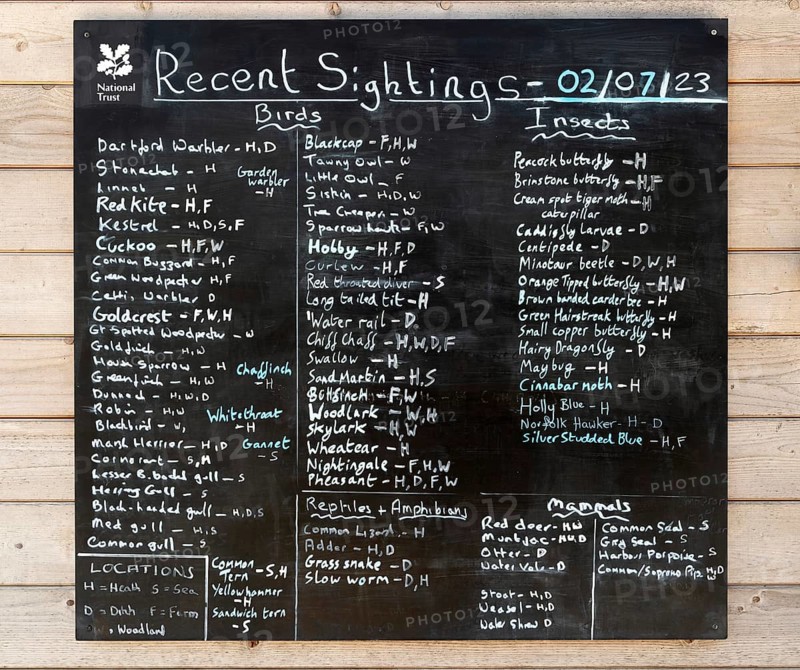 National
Trust
Recent Sightings - 02/07/23
Birds
Dartford Warbler - H, D
Stonechat - H
Linnet - H
Garden
warbler
- H
Red Kite - H, F
Kestrel - H, D, S, F
Cuckoo - H, F, W
Common Buzzard - H, F
Green Woodpecker H, F
Cettis Warbler D
Goldcrest - F, W, H
Gt Spotted Woodpecker - W
Goldfinch - H, W
House Sparrow - H
Chaffinch
- H
Greenfinch - H, W
Dunnock - H, W, D
Robin - H, W
Whitethroat
- H
Blackbird - W,
Marsh Harrier - H, D
Gannet
- S
Cormorant - S, H
Lesser B. backd gull - S
Herring Gull - S
Black-headed gull - H, D, S
Med gull - H, S
Common gull - S
Common
Tern - S, H
Yellowhammer
- H
Sandwich tern
- S
LOCATIONS
H = Heath S = Sea
D = Dish F = Farm
W, Woodland
Blackcap - F, H, W
Tawny Owl - W
Little Owl - F
Siskin - H, D, W
Tree Creeper - W
Sparrow hawk - F, W
Hobby - H, F, D
Curlew - H, F
Red throated diver - S
Long tailed tit - H
Water rail - D
Chiff Chaff - H, W, D, F
Swallow - H
Sand Martin - H, S
Bullfinch - F, W
Woodlark - W, H
Skylark - H, W
Wheatear - H
Nightingale - F, H, W
Pheasant - H, D, F, W
Insects
Peacock butterfly - H
Brimstone butterfly - H, F
Cream spot tiger moth - H
caterpillar
Caddisfly Larvae - D
Centipede - D
Minotaur beetle - D, W, H
Orange Tipped butterfly - H, W
Brown banded carder bee - H
Green Hairstreak butterfly - H
Small copper butterfly - H
Hairy Dragonfly - D
May bug - H
Cinnabar moth - H
Holly Blue - H
Norfolk Hawker - H - D
Silver Studded Blue - H, F
Reptiles + Amphibians
Common Lizard - H
Adder - H, D
Grass snake - D
Slow worm - D, H
Mammals
Red deer - H W
Muntjac - H, W, D
Otter - D
Water Vole - D
Stoat - H, D
Weasel - H, D
Water Shrew D
Common Seal - S
Grey Seal - S
Harbour Porpoise - S
Common/Soprano Pip H, D
W
PHOTO12